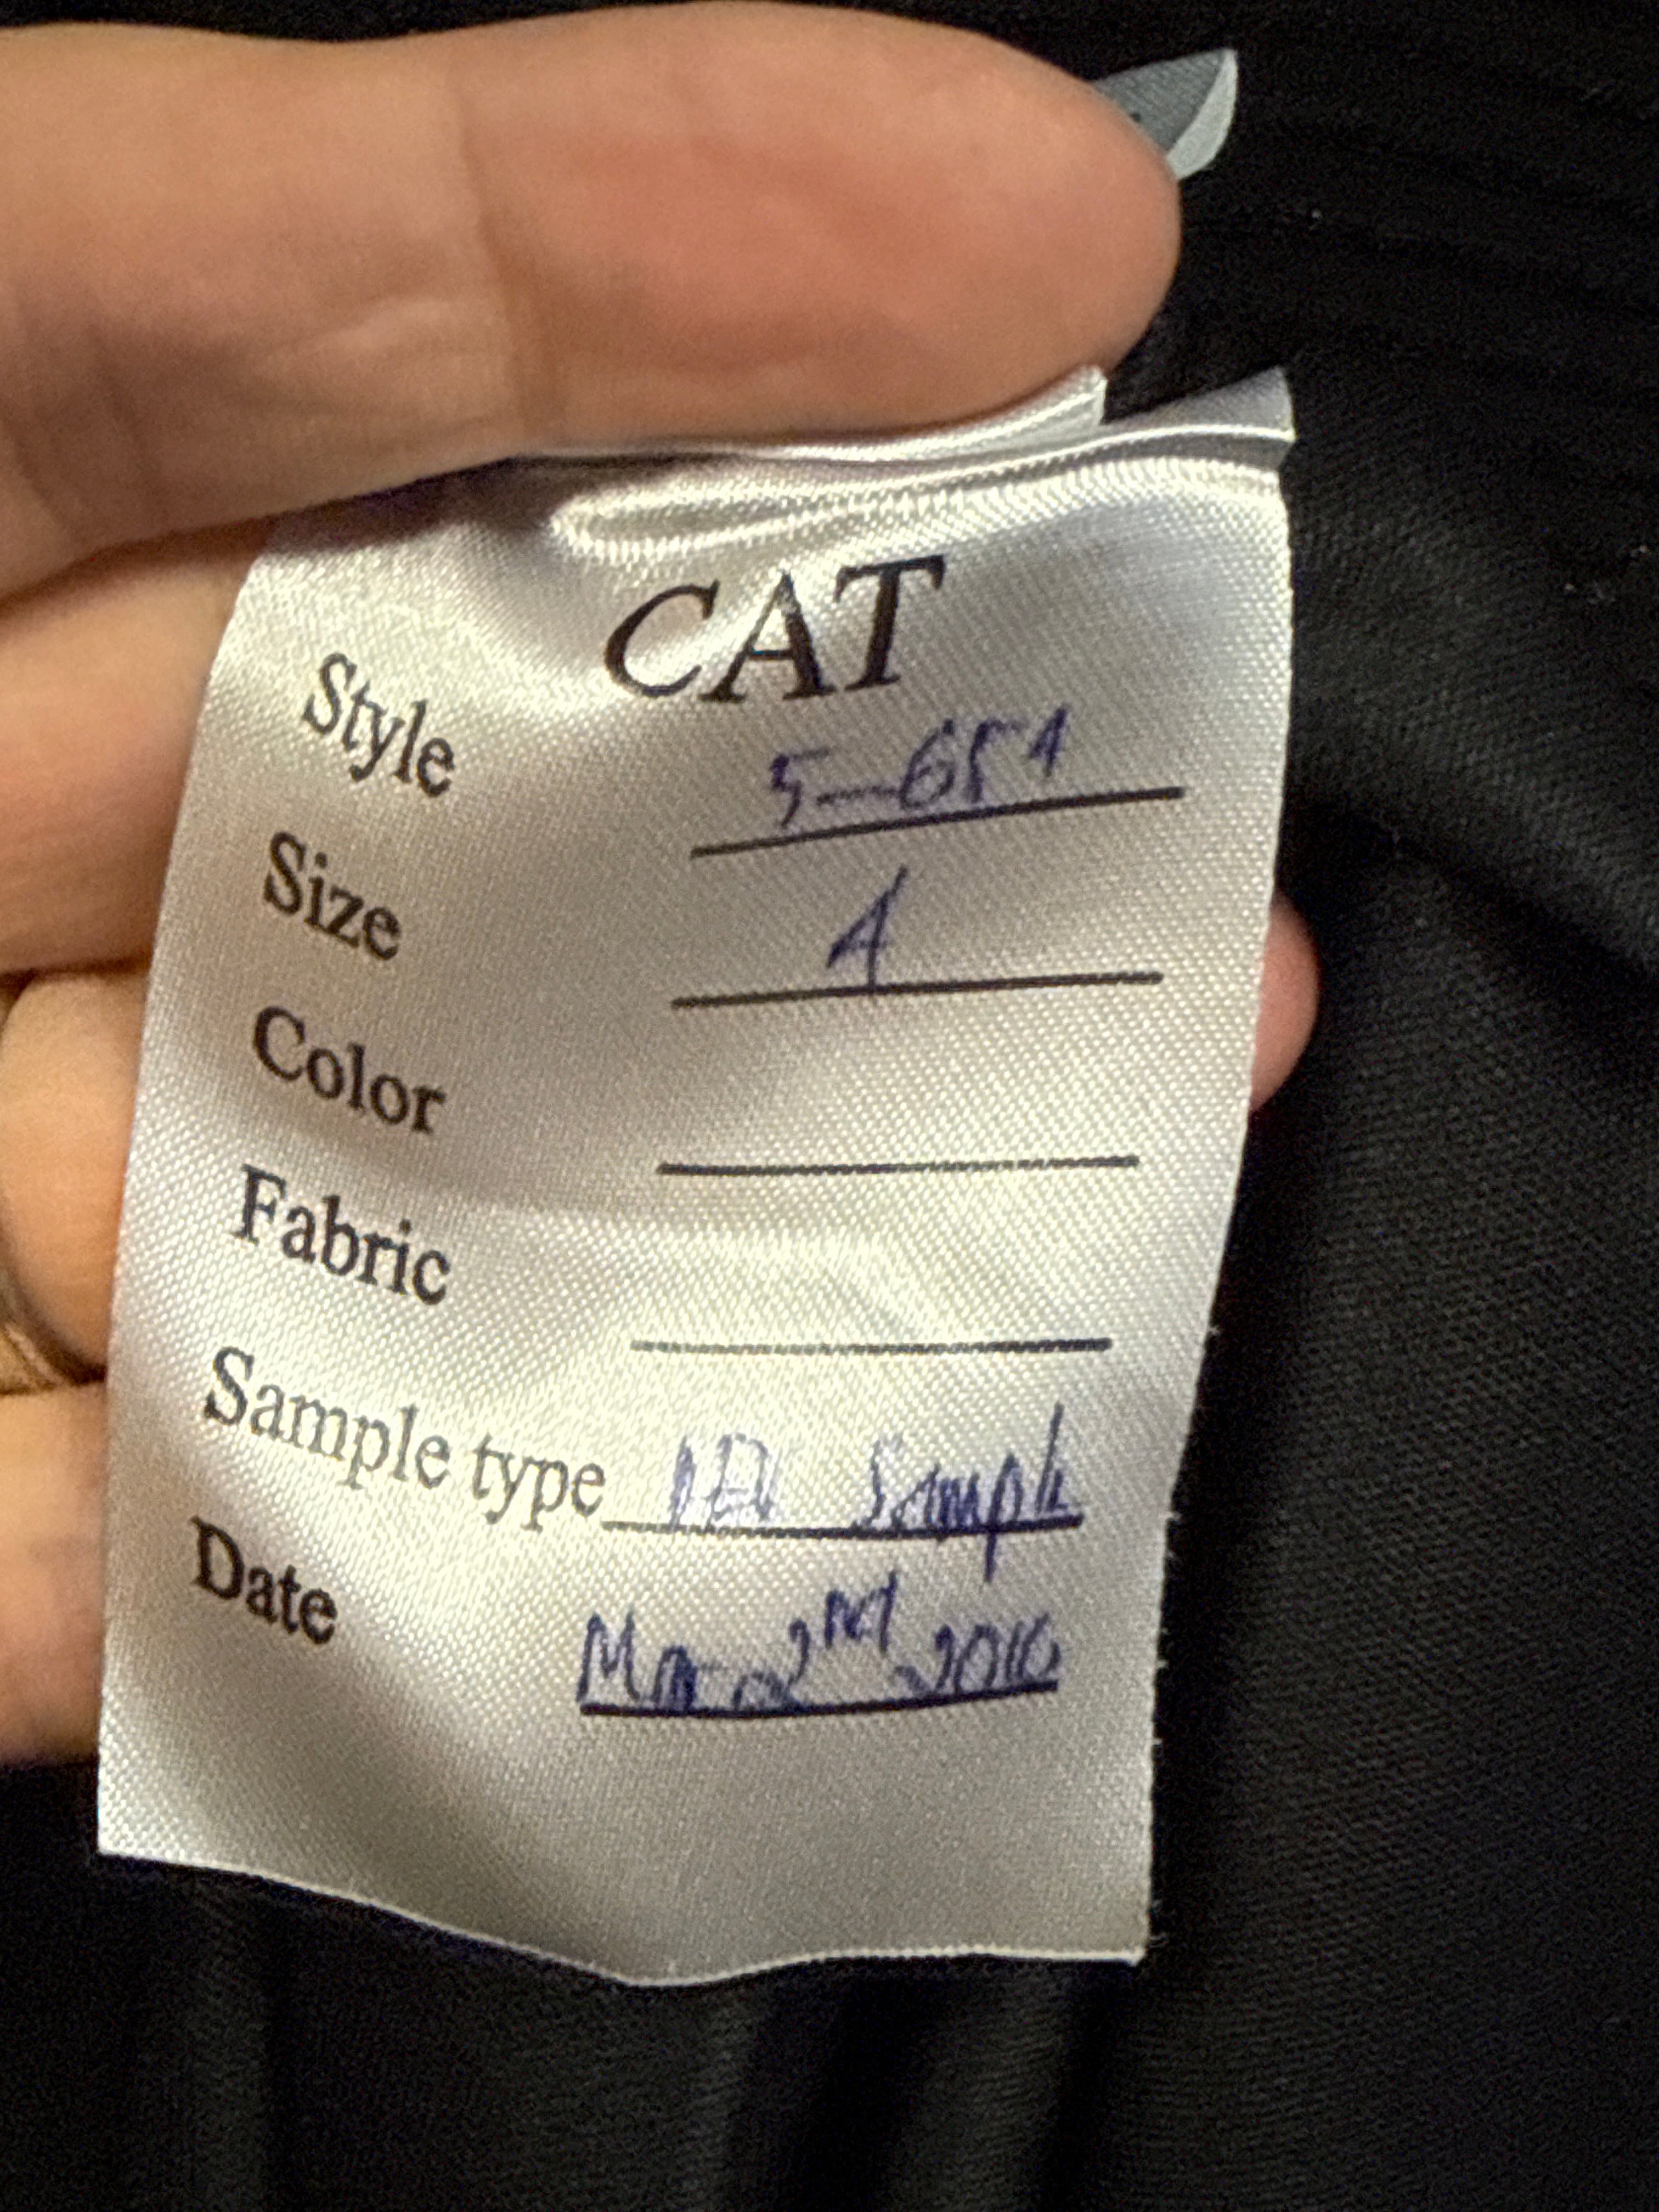 CAT
Style 5-651
Size 4
Color
Fabric
Sample type Sample
Date Mar. 2nd